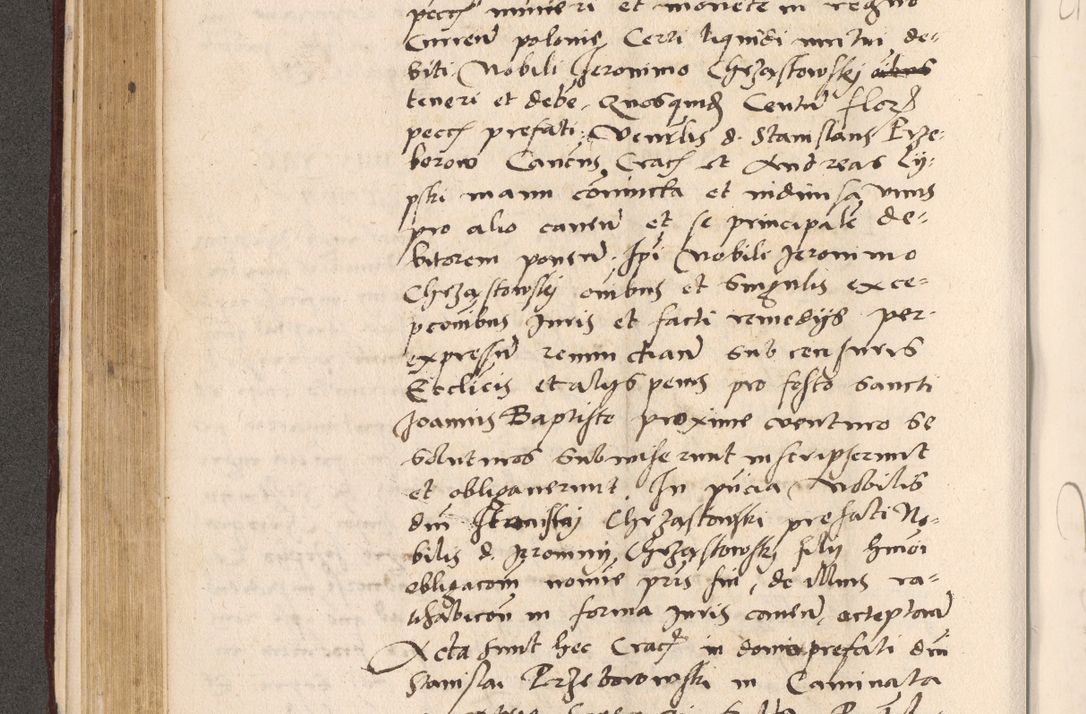 peccũ numeri et monete in regno
Curren polonie Certi liquidi mutui de-
biti Nobili Jeronimo Chrząstowskj
teneri et debe. Quosquidẽ Centũ flor
pecc prefati. Venrlis d. Stanislaus Prze-
borow Cancus Crac et Andreas Ly-
pski manu coniuncta et indiuisa vnus
pro alio cauen et se principale de-
bitorem ponen. Ipi Nobili Jeronimo
Chrząstowskj onibus et singulis exce-
pconibus Juris et facti remedijs per-
expressũ renunctian sub censuris
Ecclicis et alijs penis pro festo sancti
Joannis Baptiste proxime venturo se
soluturos submiserunt inscripserunt
et obligauerunt. In pncia Nobilis
dni Chrząstowski prefati No-
bilis d. Jeronimj Chrząstowskj filij hmoi
obligacom nomie pris sui, de illius ra-
tihabicon in forma Juris cauen, acceptan
Acta sunt hec Crac in domo prefati dni
Stanislai Przeborowski in Caminata